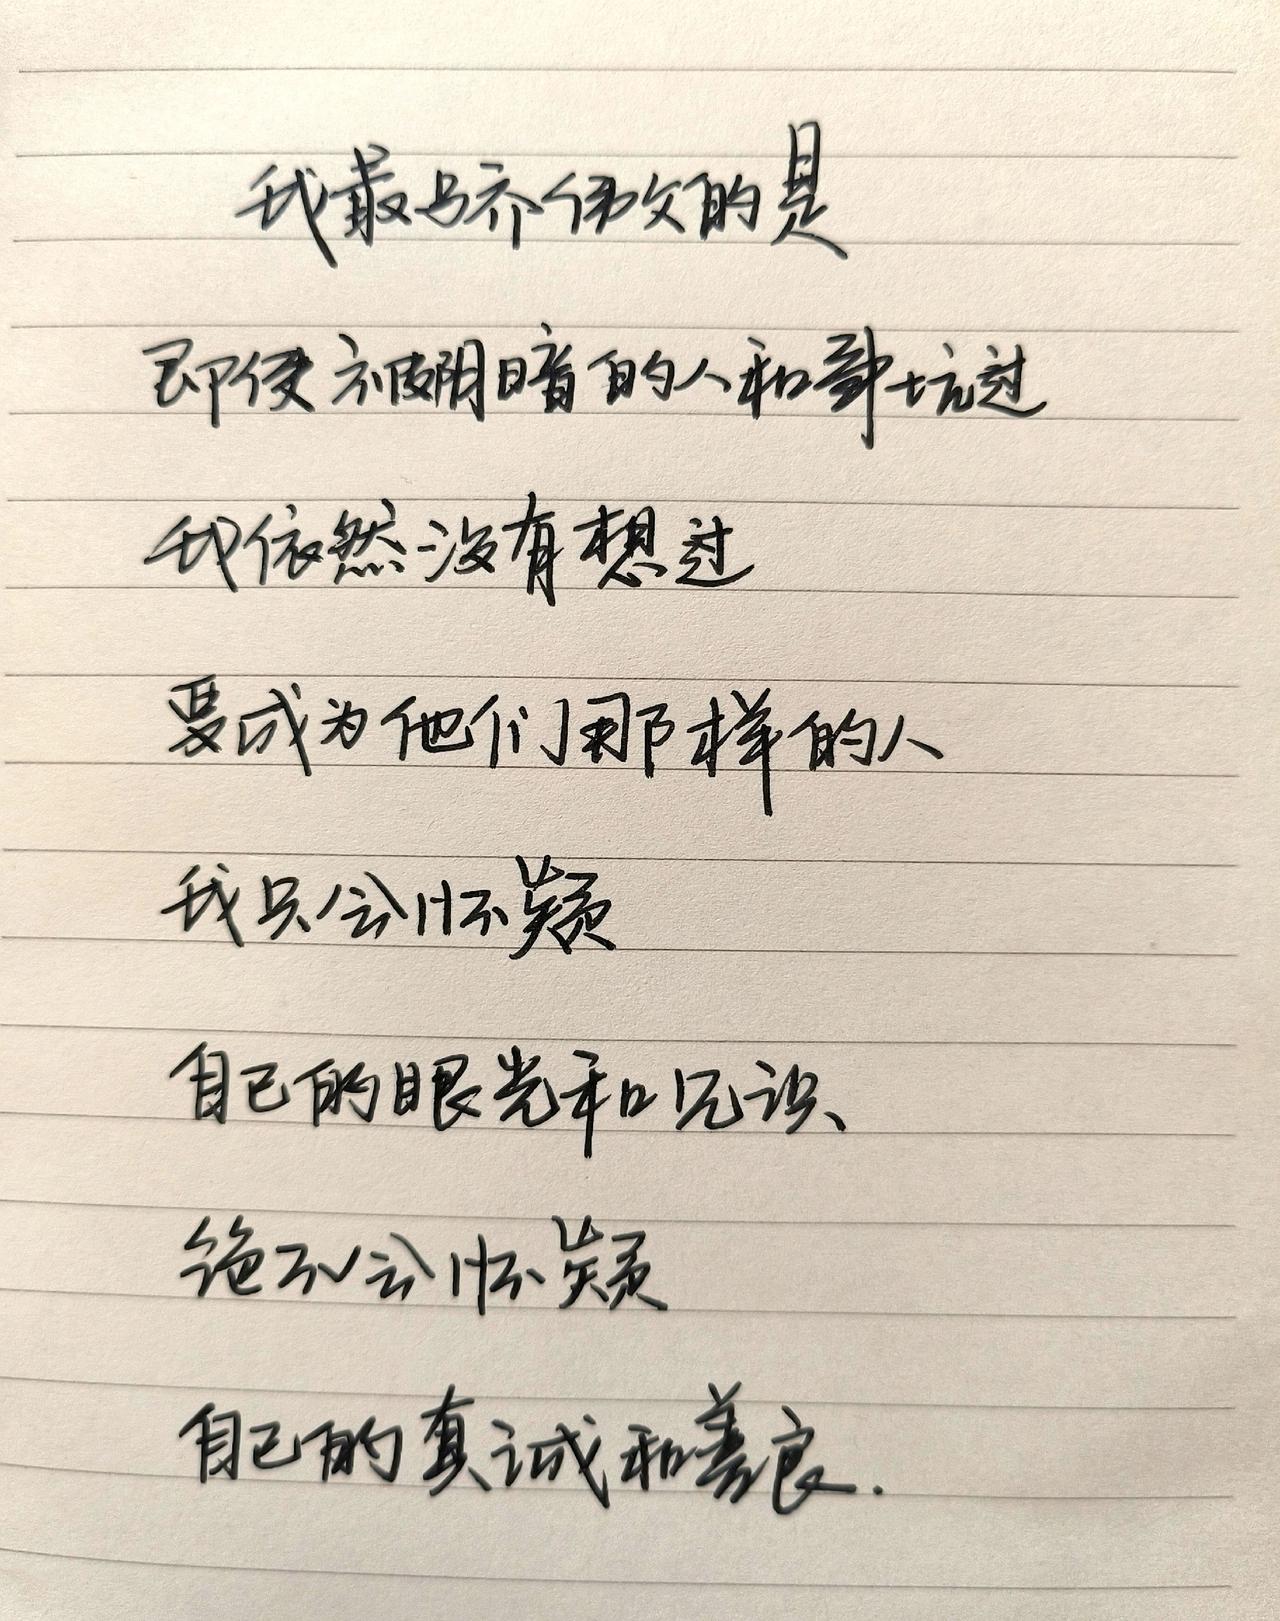 我最骄傲的是
即使被阴暗的人和事坑过
我依然没有想过
要成为他们那样的人
我只会怀疑
自己的眼光和见识、
绝不会怀疑
自己的真诚和善良.